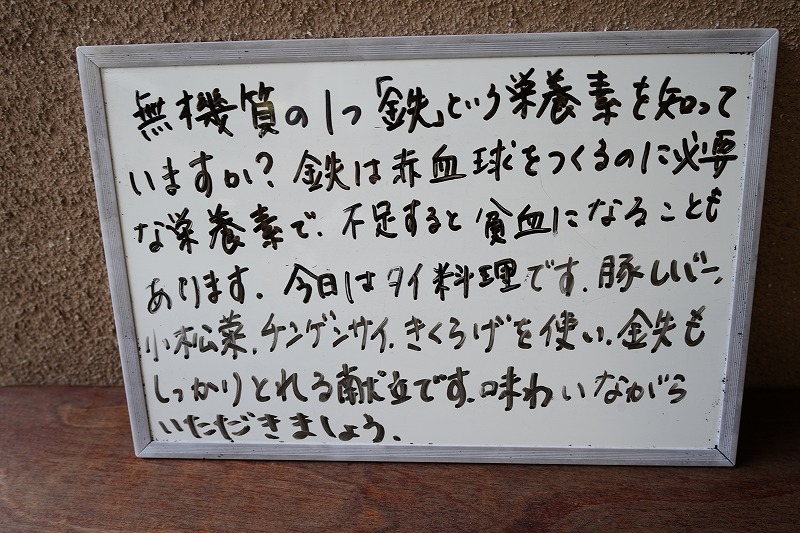 無機質の1つ「鉄」という栄養素を知って
いますか?鉄は赤血球をつくるのに必要
な栄養素で、不足すると貧血になることも
あります。今日はタイ料理です。豚レバー、
小松菜、チンゲンサイ、きくらげを使い、鉄も
しっかりとれる献立です。味わいながら
いただきましょう。